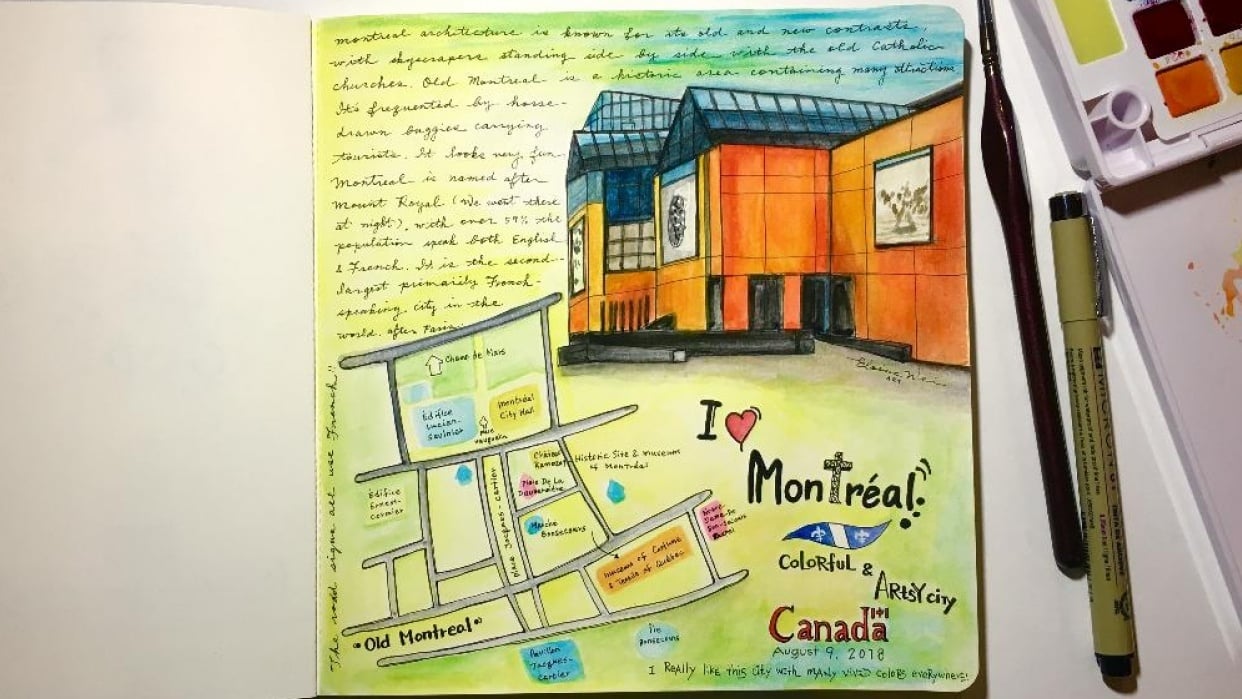 montreal architecture is known for its old and new contrasts,
with skycrapers standing side by side with the old Catholic
churches. Old Montreal is a historic area containing many attractions.
It's frequented by horse-
drawn buggies carrying
tourists. It looks very fun.
Montreal is named after
Mount Royal (We went there
at night), with over 59% the
population speak both English
& French. It is the second-
largest primarily French-
speaking city in the
world, after Paris.
Champ de Mars
Édifice
Lucien-
Saulnier
Montréal
City Hall
Place
Vauquelin
Château
Ramezay
Historic Site & Museum
of Montréal
Place De La
Dauversière
Édifice
Ernest-
Cormier
Marché
Bonsecours
Place Jacques-Cartier
Notre-
Dame-De
Bon-Secours
Museum of Costume
& Textile of Québec
"Old Montreal"
Pavillon
Jacques-
Cartier
Bonsecours
The road signs all use French"
I
Montréal
COLORFUL &
ARTSY city
Canada
August 9, 2018
I REALLY LIKE THIS CITY WITH MANY VIVID COLORS EVERYWHERE!
MICRON